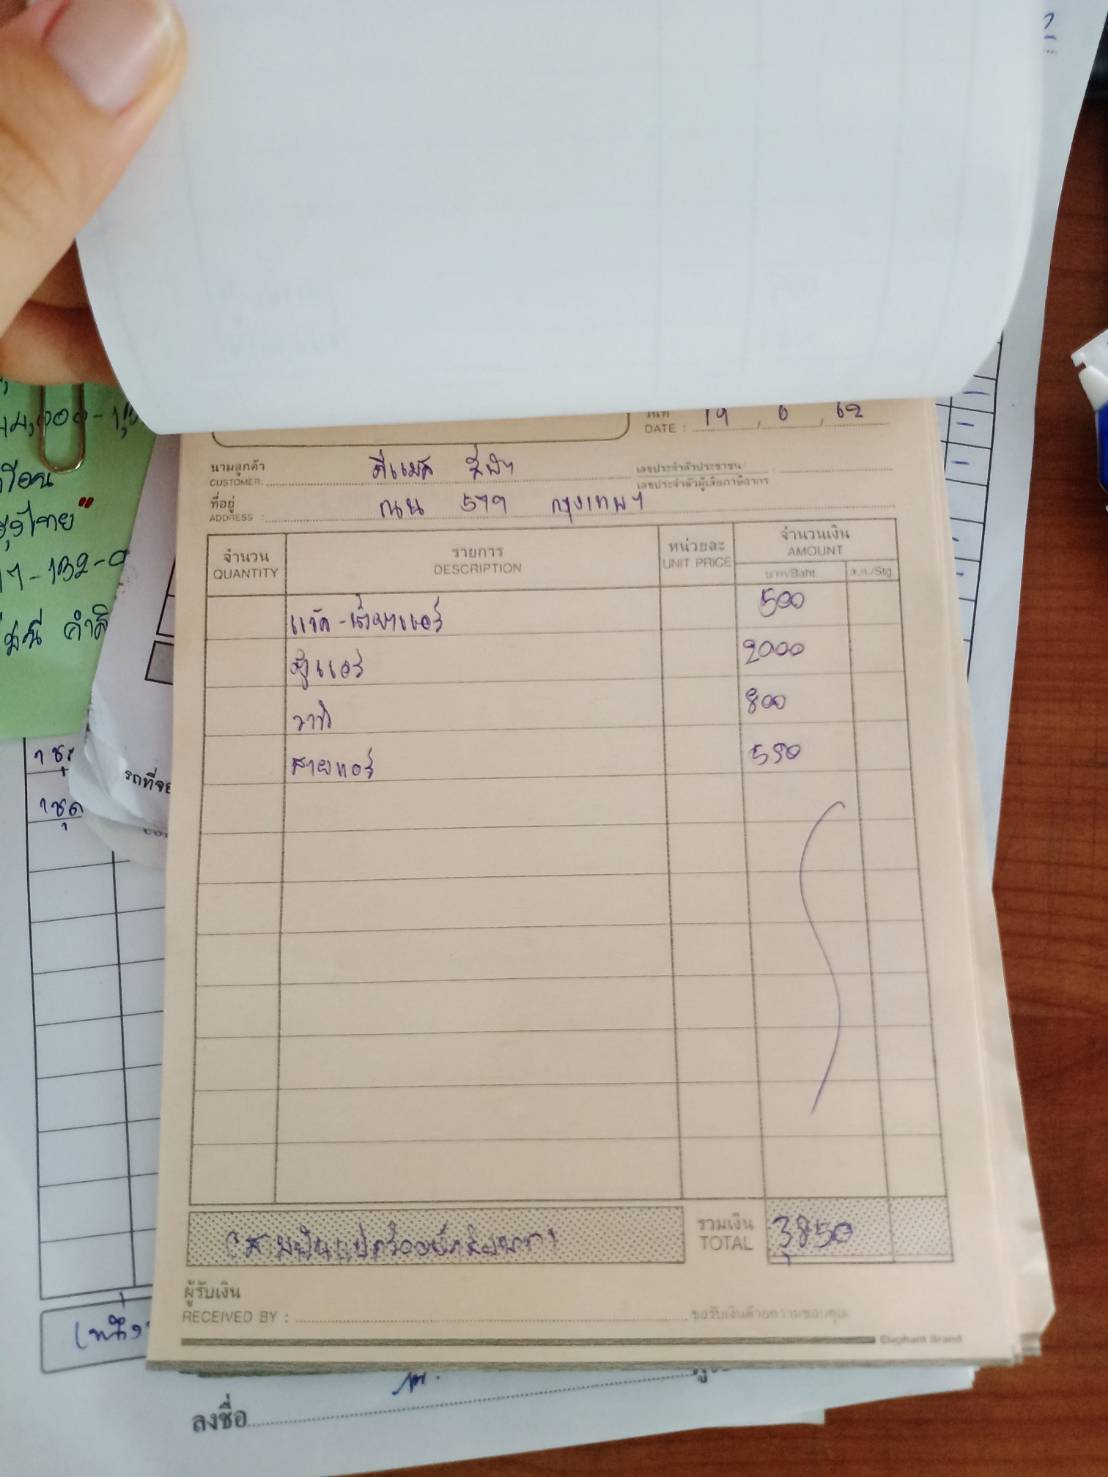 วันที่
DATE : 19 , 6 , 62
นามลูกค้า
CUSTOMER: ดีแมค
เลขประจำตัวประชาชน
เลขประจำตัวผู้เสียภาษีอากร
ที่อยู่
ADDRESS : ถนน 579 กรุงเทพฯ
จำนวน QUANTITY
รายการ DESCRIPTION
หน่วยละ UNIT PRICE
จำนวนเงิน AMOUNT
บาท/Baht ส.ต./Stg.
แวค-น้ำยาแอร์ 500
ตู้แอร์ 2000
วาล์ว 800
สายแอร์ 550
(สามพันแปดร้อยห้าสิบบาท)
รวมเงิน TOTAL 3,850
ผู้รับเงิน
RECEIVED BY : ขอรับเงินด้วยความขอบคุณ
Elephant Brand
ลงชื่อ
1ชุด
รถที่จอ
17-132-0